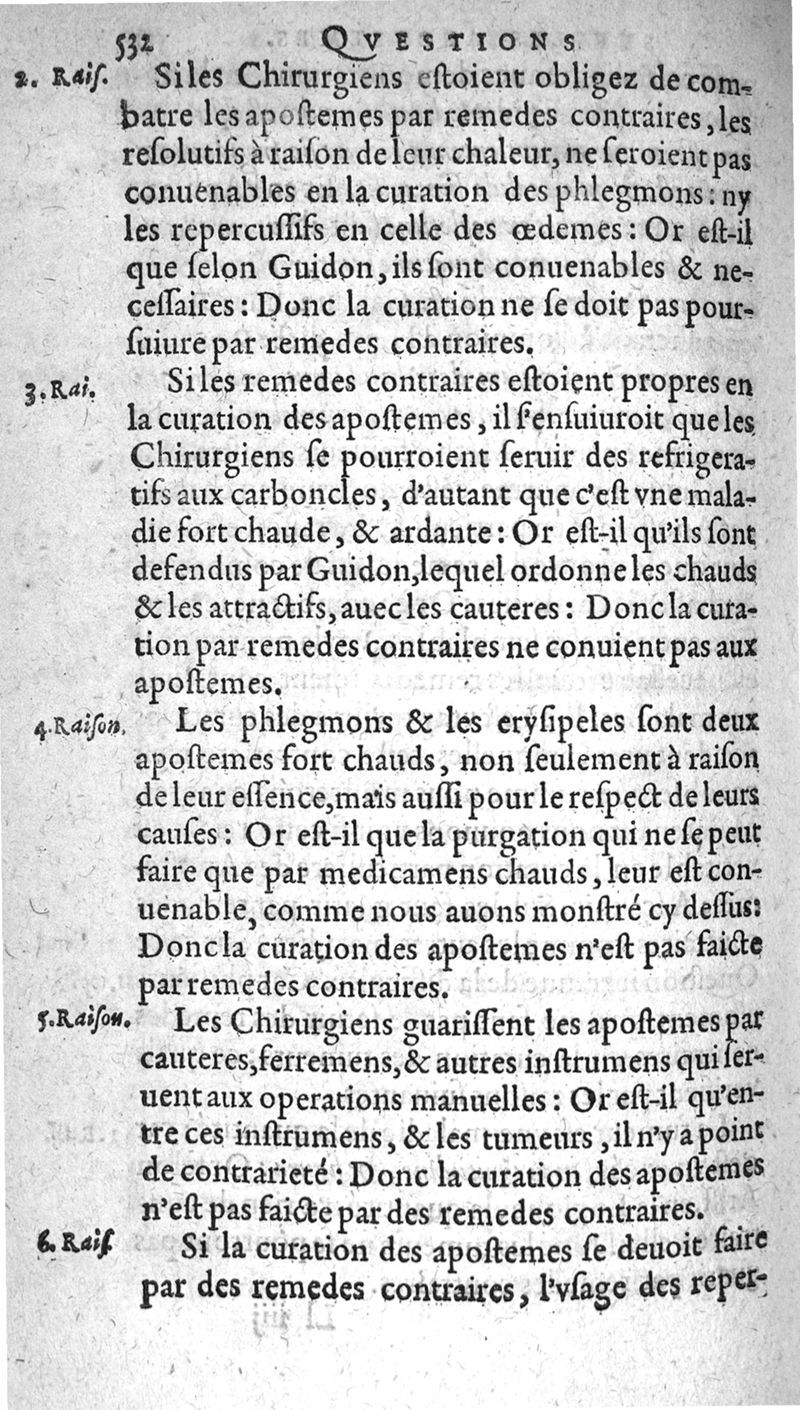 532 QVESTIONS
2. Raiſ. Si les Chirurgiens eſtoient obligez de com-
batre les apoſtemes par remedes contraires, les
reſolutifs à raiſon de leur chaleur, ne ſeroient pas
conuenables en la curation des phlegmons : ny
les repercuſſifs en celle des œdemes : Or eſt-il
que ſelon Guidon, ils ſont conuenables & ne-
ceſſaires : Donc la curation ne ſe doit pas pour-
ſuiure par remedes contraires.
3. Rai. Si les remedes contraires eſtoient propres en
la curation des apoſtemes, il ſ'enſuiuroit que les
Chirurgiens ſe pourroient ſeruir des refrigera-
tifs aux carboncles, d'autant que c'eſt vne mala-
die fort chaude, & ardante : Or eſt-il qu'ils ſont
defendus par Guidon, lequel ordonne les chauds
& les attractifs, auec les cauteres : Donc la cura-
tion par remedes contraires ne conuient pas aux
apoſtemes.
4. Raiſon. Les phlegmons & les eryſipeles ſont deux
apoſtemes fort chauds, non ſeulement à raiſon
de leur eſſence, mais auſſi pour le reſpect de leurs
cauſes : Or eſt-il que la purgation qui ne ſe peut
faire que par medicamens chauds, leur eſt con-
uenable, comme nous auons monſtré cy deſſus:
Donc la curation des apoſtemes n'eſt pas faicte
par remedes contraires.
5. Raiſon. Les Chirurgiens guariſſent les apoſtemes par
cauteres, ferremens, & autres inſtrumens qui ſer-
uent aux operations manuelles : Or eſt-il qu'en-
tre ces inſtrumens, & les tumeurs, il n'y a point
de contrarieté : Donc la curation des apoſtemes
n'eſt pas faicte par des remedes contraires.
6. Raiſ Si la curation des apoſtemes ſe deuoit faire
par des remedes contraires, l'vſage des reper-